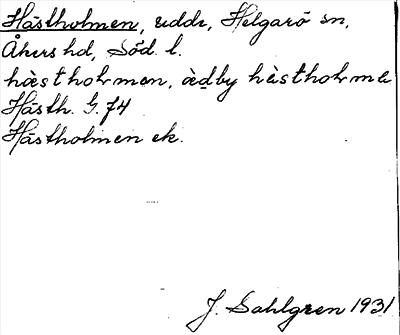 Hästholmen, udde, Helgarö sn,
Åkers hd, Söd. l.
hàstholmen, àdby hàstholme
Hästh. G. 74
Hästholmen ek.
J. Sahlgren 1931